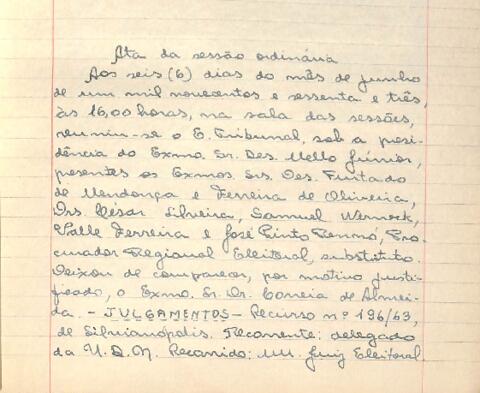 Ata da sessão ordinária
Aos seis (6) dias do mês de junho
de um mil novecentos e sessenta e três,
às 16,00 horas, na sala das sessões,
reuniu-se o E. Tribunal, sob a presi-
dência do Exmo. Sr. Des. Mello Júnior,
presentes os Exmos. Srs. Des. Furtado
de Mendonça e Ferreira de Oliveira,
Drs. César Silveira, Samuel Werneck,
Valle Ferreira e José Pinto Rennó, Pro-
curador Regional Eleitoral, substituto.
Deixou de comparecer, por motivo justi-
ficado, o Exmo. Sr. Dr. Correia de Almei-
da. - JULGAMENTOS - Recurso nº 196/63,
de Silvianópolis. Recorrente: delegado
da U.D.N. Recorrido: MM. Juiz Eleitoral